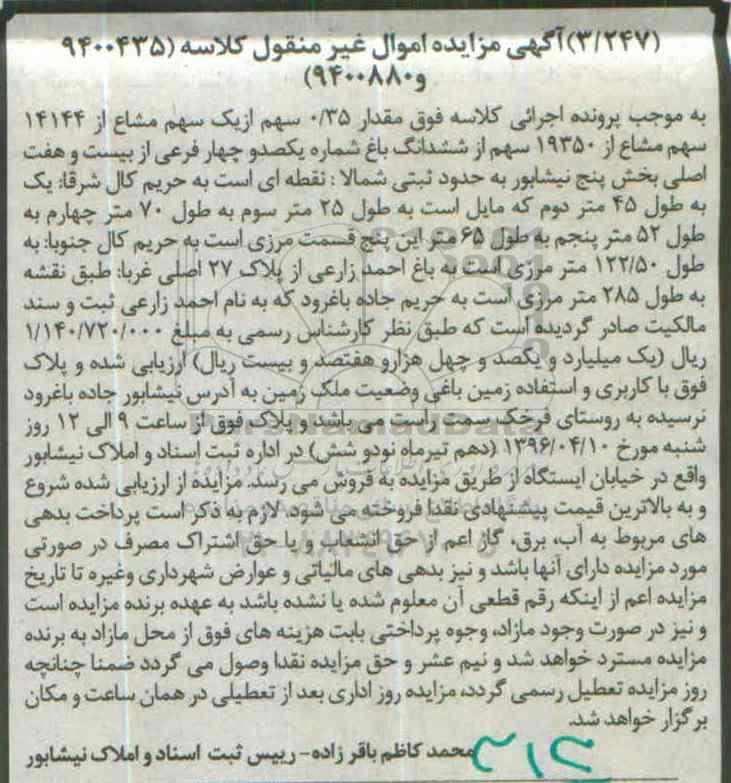 (۳/۲۴۷) آگهی مزایده اموال غیر منقول کلاسه (۹۴۰۰۴۳۵
و ۹۴۰۰۸۸۰)
به موجب پرونده اجرائی کلاسه فوق مقدار ۰/۳۵ سهم ازیک سهم مشاع از ۱۴۱۴۴
سهم مشاع از ۱۹۳۵۰ سهم از ششدانگ باغ شماره یکصدو چهار فرعی از بیست و هفت
اصلی بخش پنج نیشابور به حدود ثبتی شمالا : نقطه ای است به حریم کال شرقا: یک
به طول ۴۵ متر دوم که مایل است به طول ۲۵ متر سوم به طول ۷۰ متر چهارم به
طول ۵۲ متر پنجم به طول ۶۵ متر این پنج قسمت مرزی است به حریم کال جنوبا: به
طول ۱۲۲/۵۰ متر مرزی است به باغ احمد زارعی از پلاک ۲۷ اصلی غربا: طبق نقشه
به طول ۲۸۵ متر مرزی است به حریم جاده باغرود که به نام احمد زارعی ثبت و سند
مالکیت صادر گردیده است که طبق نظر کارشناس رسمی به مبلغ ۱/۱۴۰/۷۲۰/۰۰۰
ریال (یک میلیارد و یکصد و چهل هزارو هفتصد و بیست ریال) ارزیابی شده و پلاک
فوق با کاربری و استفاده زمین باغی وضعیت ملک زمین به آدرس نیشابور جاده باغرود
نرسیده به روستای فرخک سمت راست می باشد و پلاک فوق از ساعت ۹ الی ۱۲ روز
شنبه مورخ ۱۳۹۶/۰۴/۱۰ (دهم تیرماه نودو شش) در اداره ثبت اسناد و املاک نیشابور
واقع در خیابان ایستگاه از طریق مزایده به فروش می رسد. مزایده از ارزیابی شده شروع
و به بالاترین قیمت پیشنهادی نقدا فروخته می شود. لازم به ذکر است پرداخت بدهی
های مربوط به آب، برق، گاز اعم از حق انشعاب و یا حق اشتراک مصرف در صورتی
مورد مزایده دارای آنها باشد و نیز بدهی های مالیاتی و عوارض شهرداری وغیره تا تاریخ
مزایده اعم از اینکه رقم قطعی آن معلوم شده یا نشده باشد به عهده برنده مزایده است
و نیز در صورت وجود مازاد، وجوه پرداختی بابت هزینه های فوق از محل مازاد به برنده
مزایده مسترد خواهد شد و نیم عشر و حق مزایده نقدا وصول می گردد ضمنا چنانچه
روز مزایده تعطیل رسمی گردد، مزایده روز اداری بعد از تعطیلی در همان ساعت و مکان
برگزار خواهد شد.
محمد کاظم باقر زاده- رییس ثبت اسناد و املاک نیشابور
ParsNamadData